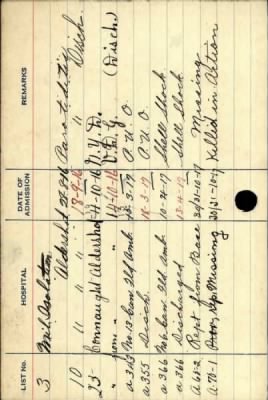 LIST No. HOSPITAL DATE OF ADMISSION REMARKS
3 Mil. Isolation Aldershot 28-8-16 Parotiditis
10 " " " 13-9-16 " Disch.
23 Connaught Aldershot 4-10-16 N.Y.D.
" from " " 10-16 V.D.G. (Disch.)
a 343 No 13 Can Fld Amb. 3-17 P.U.O
a 355 Disch. 18-3-17 P.U.O
a 366 No 6 Can Fld Amb. 10-4-17 Shell Shock
a 366 Discharged 15-4-17 Shell Shock
a 68-2 Rept from Base 30/31-10-17 Missing
a 70-1 Prev. rep. Missing 30/31-10-17 Killed in Action